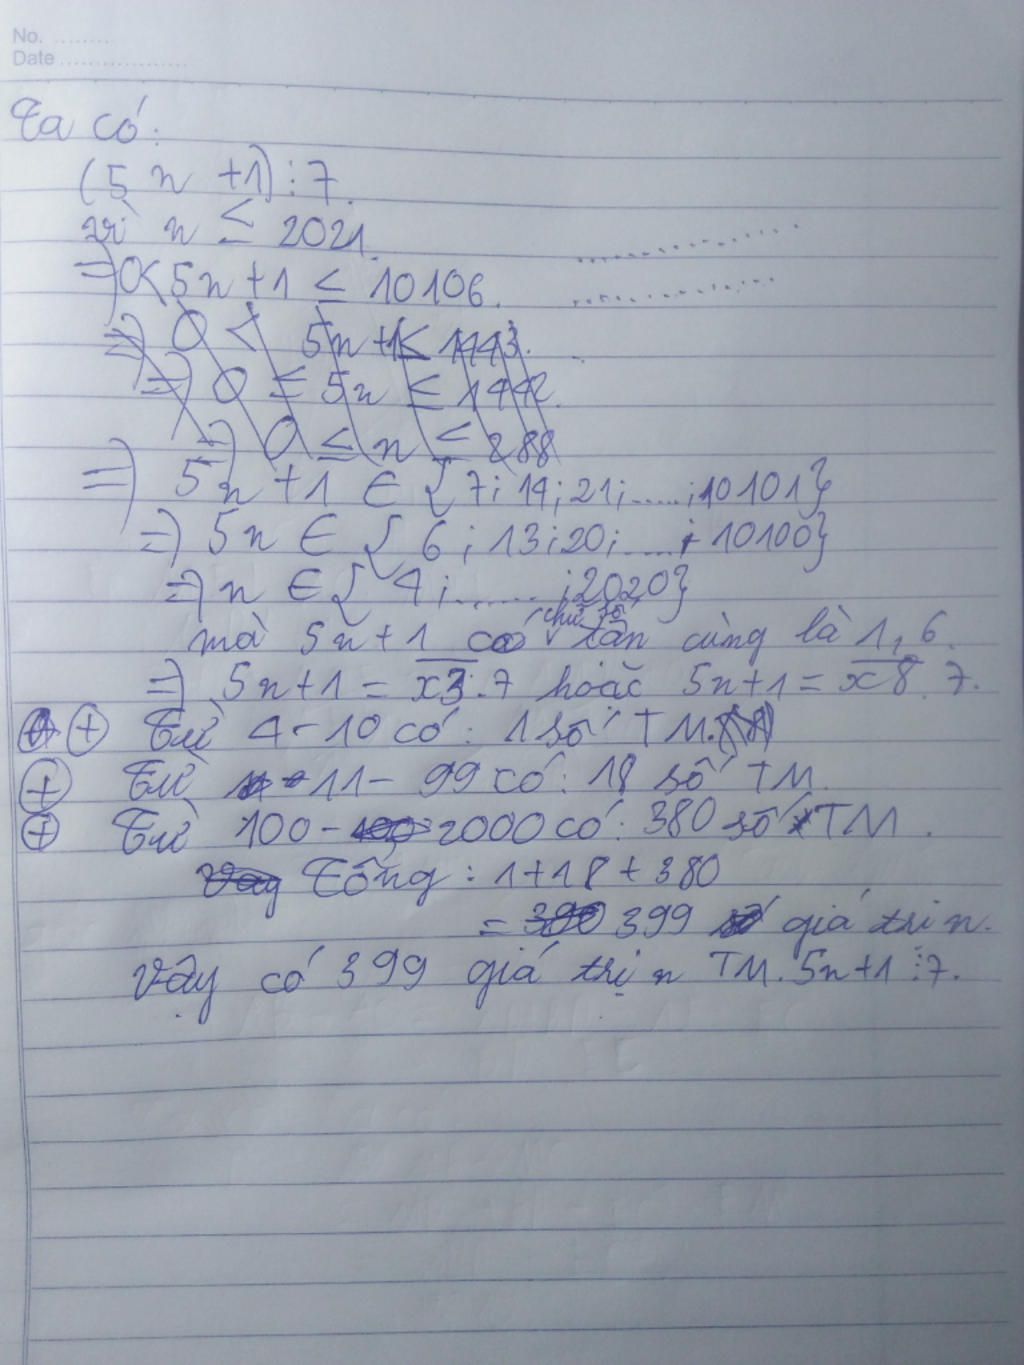 No. ........
Date ..................
Ta có:
(5n +1) ⋮ 7.
vì n ≤ 2021.
=> 0< 5n+1 ≤ 10106.
=> 0 < 5n+1≤ 1443.
=> 0 ≤ 5n ≤ 1442.
=> 0 ≤ n ≤ 288
=> 5n+1 ∈ {7; 14; 21; .....; 10101}
=> 5n ∈ {6; 13; 20; ....; 10100}
=> n ∈ {4; ......; 2020}
mà 5n+1 có chữ số tận cùng là 1, 6.
=> 5n+1 = x3.7 hoặc 5n+1 = x8.7.
+ Từ 4-10 có: 1 số TM.
+ Từ 11-99 có: 18 số TM.
+ Từ 100-2000 có: 380 số TM.
Tổng: 1+18+380
= 399 giá trị n.
Vậy có 399 giá trị n TM. 5n+1 ⋮ 7.